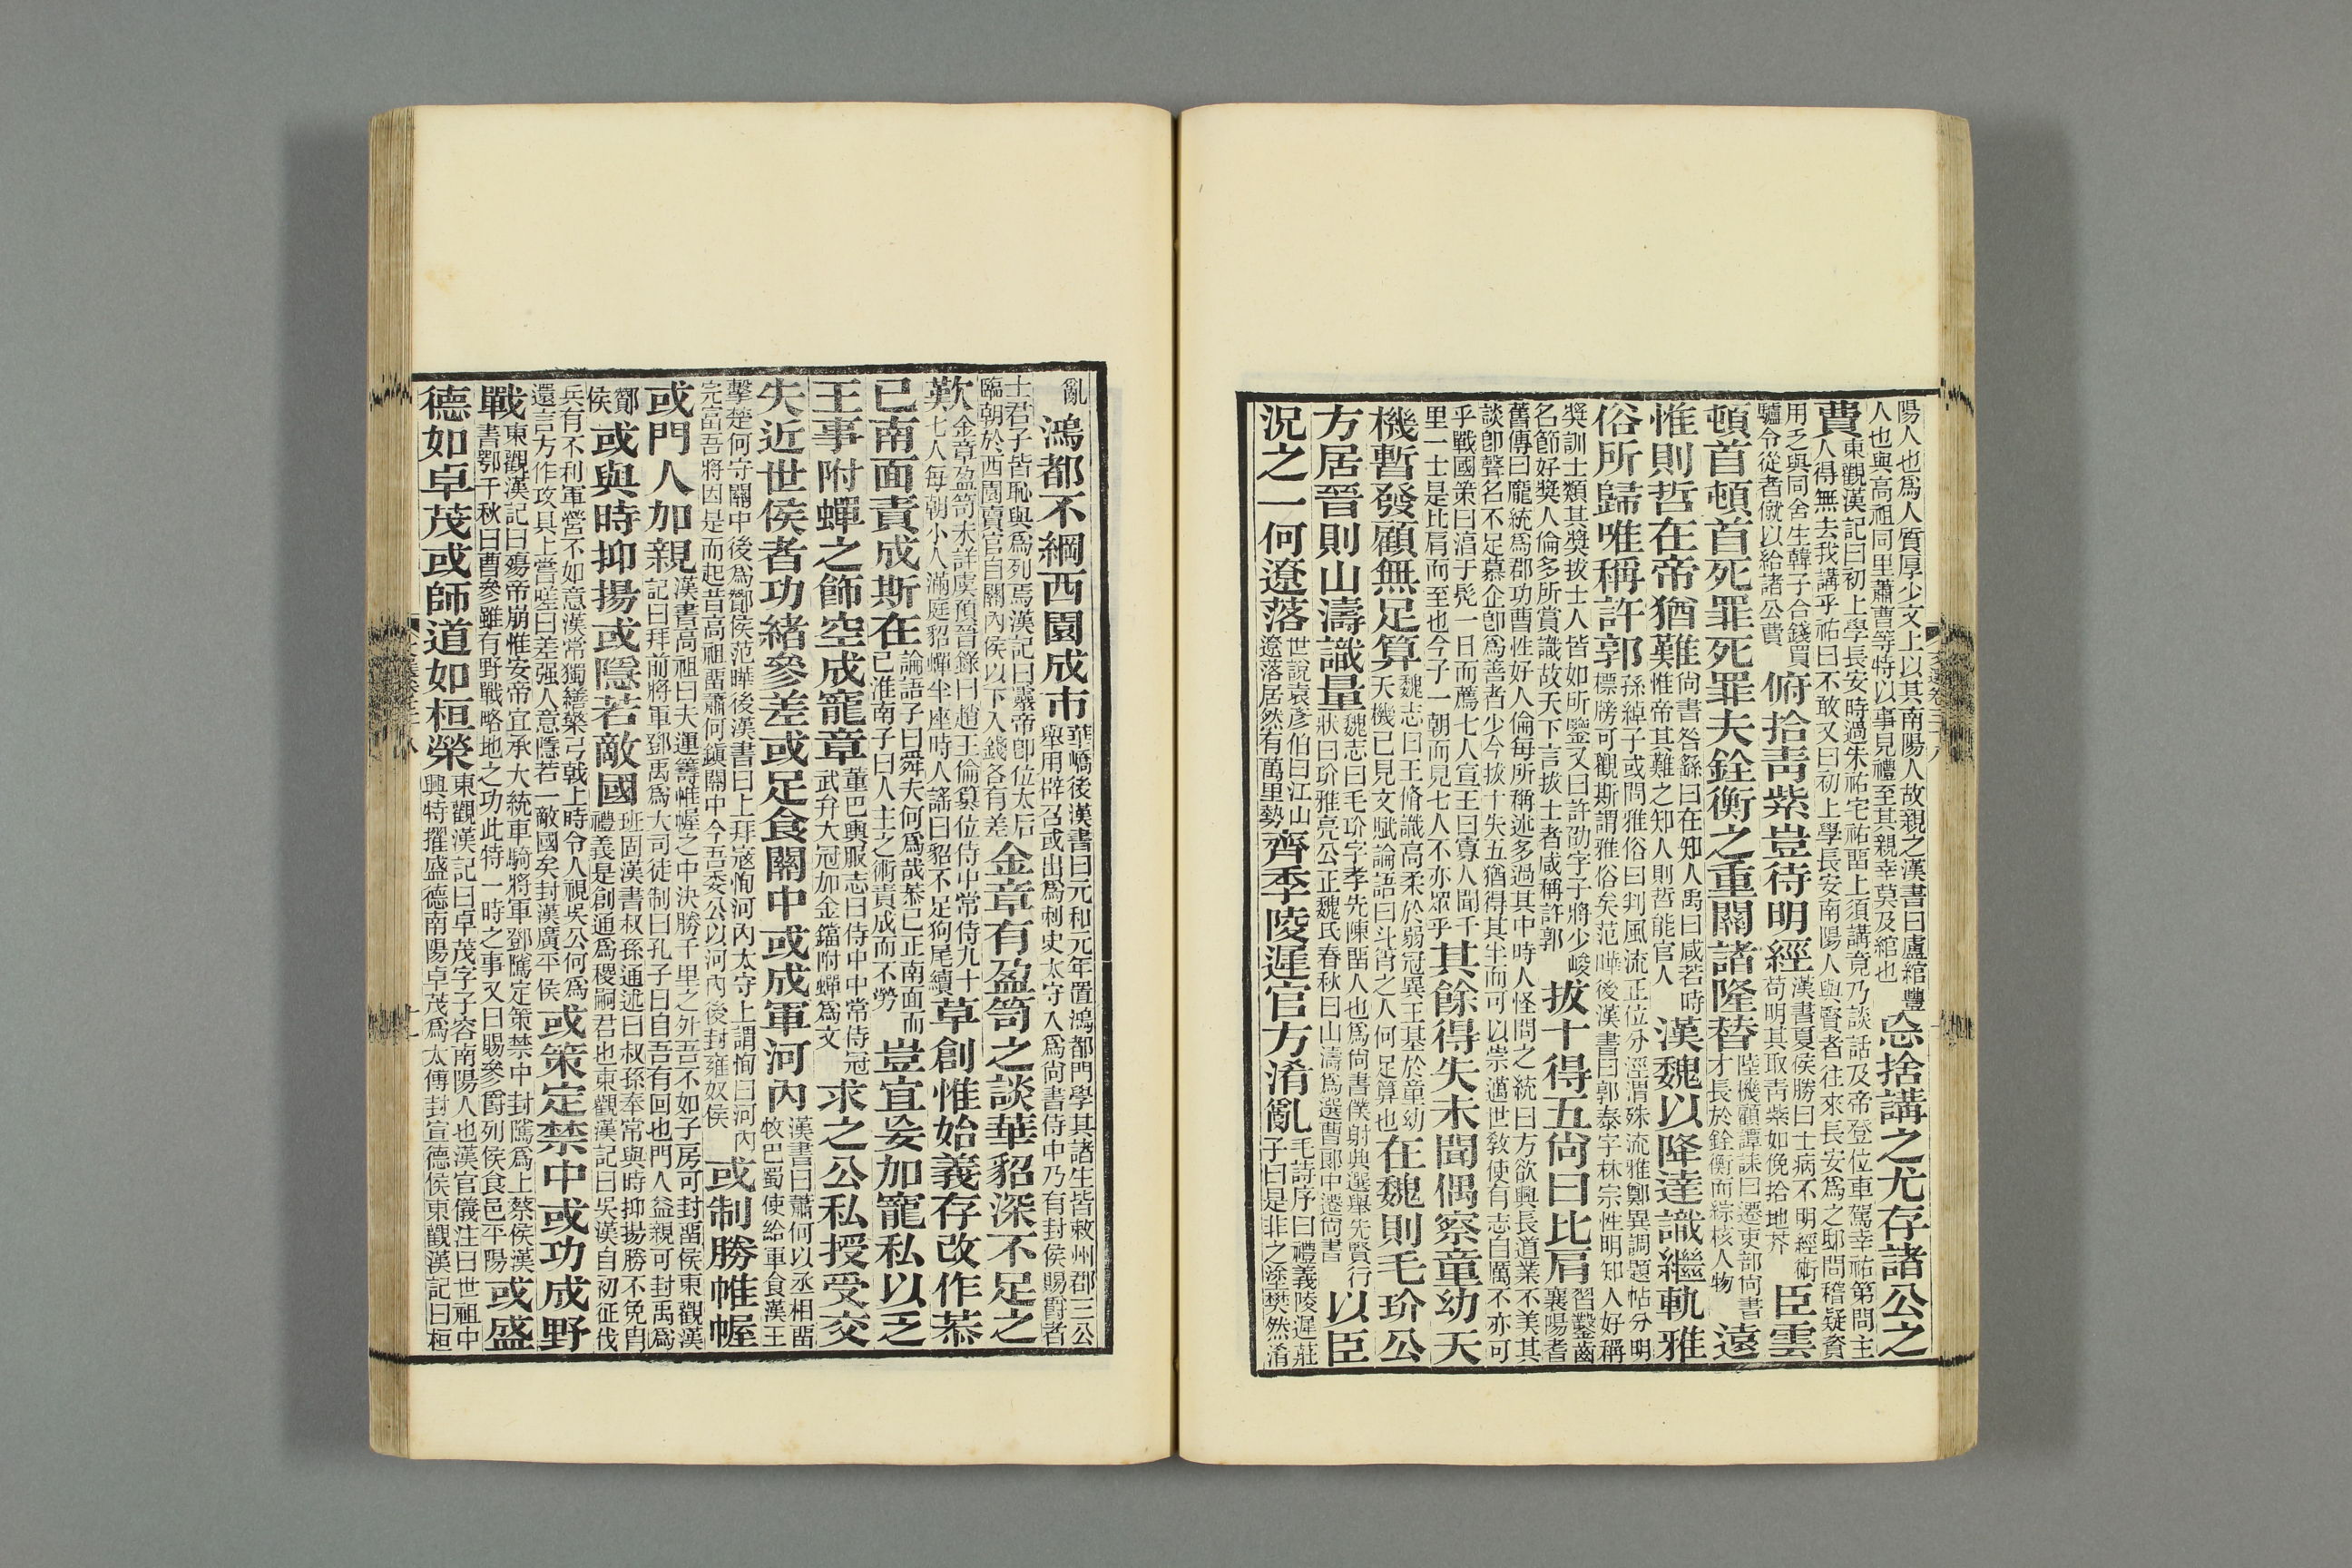 陽人也爲人質厚少文上以其南陽人故親之漢書曰盧綰豐人也與高祖同里蕭曹等特以事見禮至其親幸莫及綰也忩捨講之尤存諸公之
費東觀漢記曰初上學長安時過朱祐宅祐畱上須講竟乃談話及帝登位車駕幸祐第問主人得無去我講乎祐曰不敢又曰初上學長安南陽人與賢者往來長安爲之邸問稽疑資
用之與同舍生韓子合錢買驢令從者僦以給諸公費俯拾靑紫豈待明經漢書夏侯勝曰士病不明經術苟明其取靑紫如俛拾地芥臣雲
頓首頓首死罪死罪夫銓衡之重關諸隆替陸機顧譚誄曰遷吏部尙書才長於銓衡而綜核人物遠
惟則哲在帝猶難尙書咎繇曰在知人禹曰咸若時惟帝其難之知人則哲能官人漢魏以降達識繼軌雅
俗所歸唯稱許郭孫綽子或問雅俗曰判風流正位分涇渭殊流雅鄭異調題帖分明標牓可觀斯謂雅俗矣范曄後漢書曰郭泰字林宗性明知人好稱
奬訓士類其奬拔士人皆如所鑒又曰許劭字子將少峻名節好奬人倫多所賞識故天下言拔士者咸稱許郭拔十得五尙曰比肩習鑿齒襄陽耆
舊傳曰龐統爲郡功曹性好人倫每所稱述多過其中時人怪問之統曰方欲興長道業不美其談卽聲名不足慕企卽爲善者少今拔十失五猶得其半而可以崇邁世敎使有志自厲不亦可
乎戰國策曰淯于髠一日而薦七人宣王曰寡人聞千里一士是比肩而至也今子一朝而見七人不亦眾乎其餘得失未聞偶察童幼天
機暫發顧無足算魏志曰王脩識高柔於弱冠異王基於童幼天機已見文賦論語曰斗筲之人何足算也在魏則毛玠公
方居晉則山濤識量魏志曰毛玠字孝先陳畱人也爲尙書僕射典選舉先賢行狀曰玠雅亮公正魏氏春秋曰山濤爲選曹郎中遷尙書以臣
況之一何遼落世說袁彦伯曰江山遼落居然有萬里勢齊季陵遲官方淆亂毛詩序曰禮義陵遲莊子曰是非之塗樊然淆
亂鴻都不綱西園成市華嶠後漢書曰元和元年置鴻都門學其諸生皆敕州郡三公舉用辟召或出爲刺史太守入爲尙書侍中乃有封侯賜爵者
士君子皆恥與爲列焉漢記曰靈帝卽位太后臨朝於西園賣官自關內侯以下入錢各有差金章有盈笥之談華貂深不足之
歎金章盈笥未詳虞預晉錄曰趙王倫簒位侍中常侍九十七人每朝小人滿庭貂蟬半座時人謠曰貂不足狗尾續草創惟始義存改作恭
已南面責成斯在論語子曰舜夫何爲哉恭已正南面而已淮南子曰人主之術責成而不勞豈宜妄加寵私以乏
王事附蟬之飾空成寵章董巴輿服志曰侍中中常侍冠武弁大冠加金鐺附蟬爲文求之公私授受交
失近世侯者功緒參差或足食關中或成軍河內漢書曰蕭何以丞相畱牧巴蜀使給軍食漢王
擊楚何守關中後爲酇侯范曄後漢書曰上拜寇恂河內太守上謂恂曰河內完富吾將因是而起昔高祖畱蕭何鎭關中今吾委公以河內後封雍奴侯或制勝帷幄
或門人加親漢書高祖曰夫運籌帷幄之中決勝千里之外吾不如子房可封畱侯東觀漢記曰拜前將軍鄧禹爲大司徒制曰孔子曰自吾有回也門人益親可封禹爲
酇侯或與時抑揚或隱若敵國班固漢書叔孫通述曰叔孫奉常與時抑揚勝不免冑禮義是創通爲稷嗣君也東觀漢記曰吳漢自初征伐
兵有不利軍營不如意漢常獨繕檠弓戟上時令人視吳公何爲還言方作攻具上嘗嗟曰差强人意隱若一敵國矣封漢廣平侯或策定禁中或功成野
戰東觀漢記曰殤帝崩惟安帝宜承大統車騎將軍鄧騭定策禁中封騭爲上蔡侯漢書鄂千秋曰曹參雖有野戰略地之功此特一時之事又曰賜參爵列侯食邑平陽或盛
德如卓茂或師道如桓榮東觀漢記曰卓茂字子容南陽人也漢官儀注曰世祖中興特擢盛德南陽卓茂爲太傅封宣德侯東觀漢記曰桓